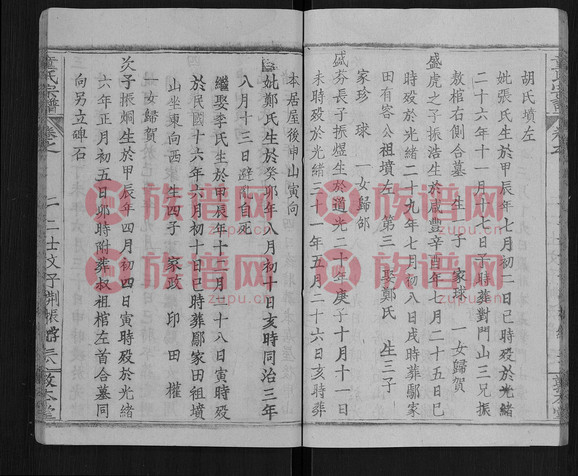 胡氏墳左
妣張氏生於甲辰年七月初二日巳時歿於光緒
二十六年十一月十六日子時葬對門山三兄振
敖棺右側合墓 生一子 家球 一女歸賀
盛虎之子振浩生於咸豐辛酉年七月二十五日巳
時歿於光緒二十九年七月初八日戌時葬鄢家
田有容公祖墳左 第三 聚鄭氏 生三子
家珍 球 一女歸郤
盛芬長子振煜生於道光二十年庚子十月十一日
未時歿於光緒三十一年五月二十六日亥時葬
本居屋後申山寅向
妣鄭氏生於癸卯年八月初十日亥時同治三年
八月十三日避亂自死
繼娶李氏生於甲辰年十二月二十八日寅時歿
於民國十六年六月初十日巳時葬鄢家田祖墳
山坐東向西 生四子 家政 印 田 權
一女歸賀
次子振烱生於甲辰年四月初四日寅時歿於光緒
六年正月初五日卯時附葬叔祖棺左首合墓同
向另立碑石
童氏宗譜
敦本堂
族谱网
zupu.cn